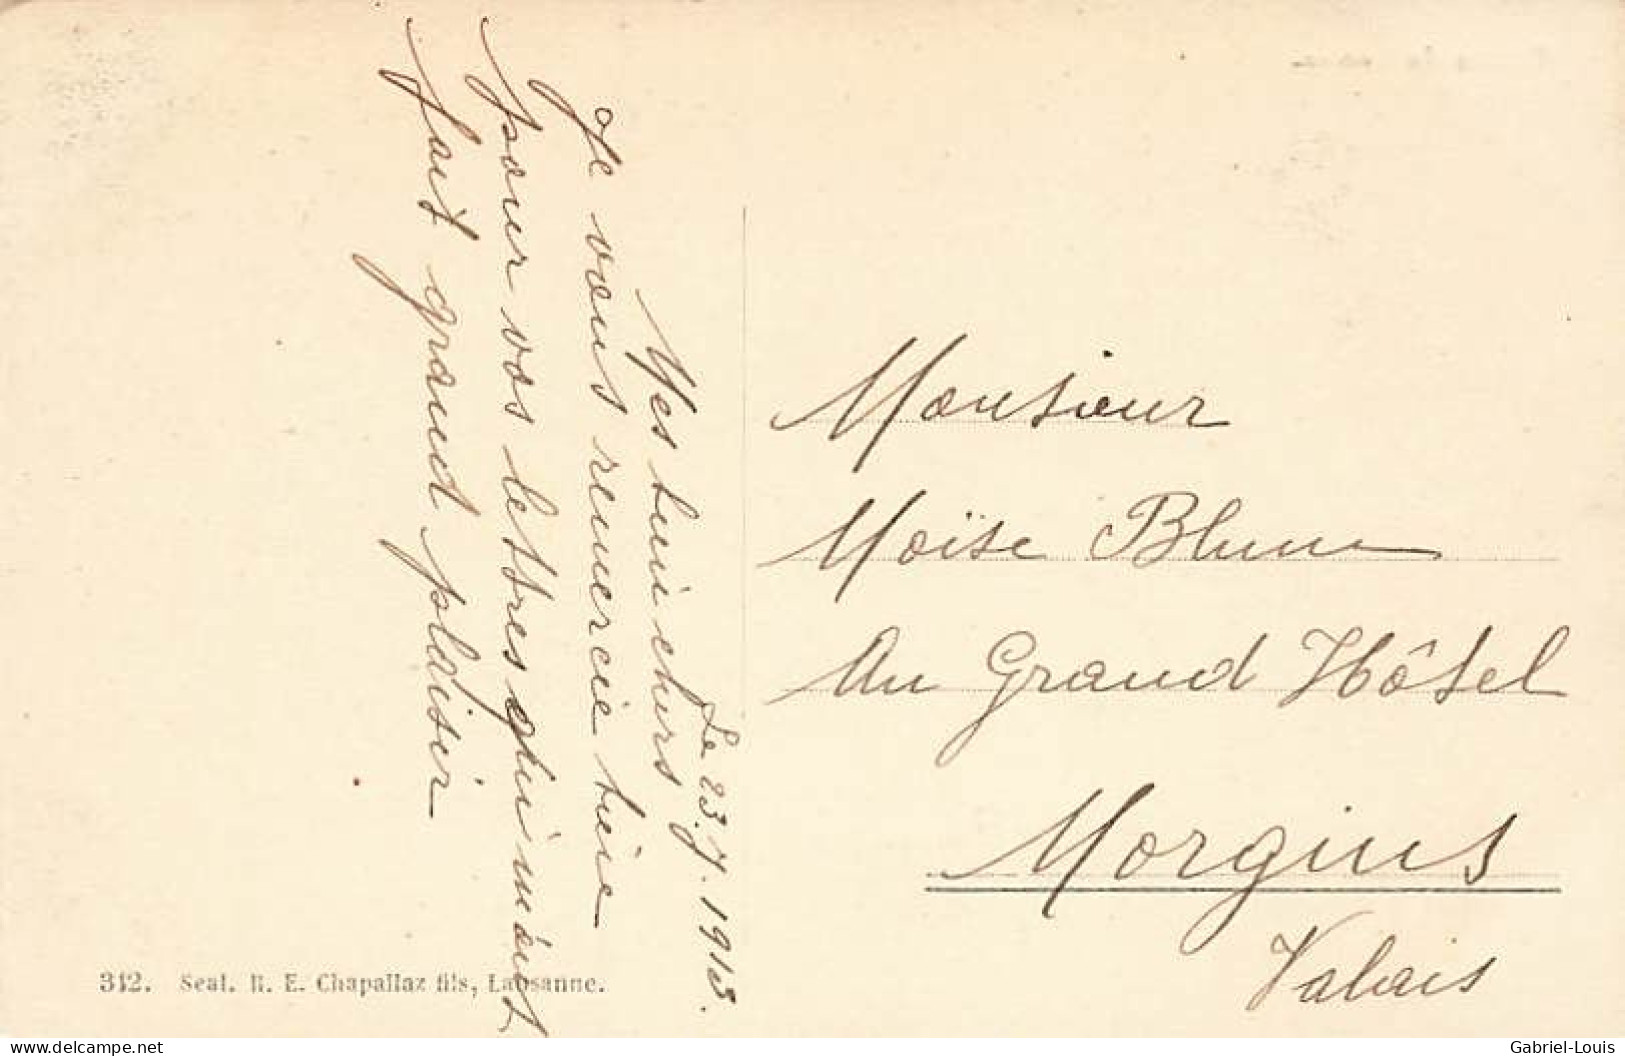 Le 23.7.1915.
Mes bien chers
Je vous remercie bien
pour vos lettres qui m'ont
fait grand plaisir
Monsieur
Moïse Blum
Au Grand Hôtel
Morgins
Valais
312. Seal. R. E. Chapallaz fils, Lausanne.
www.delcampe.net
Gabriel-Louis